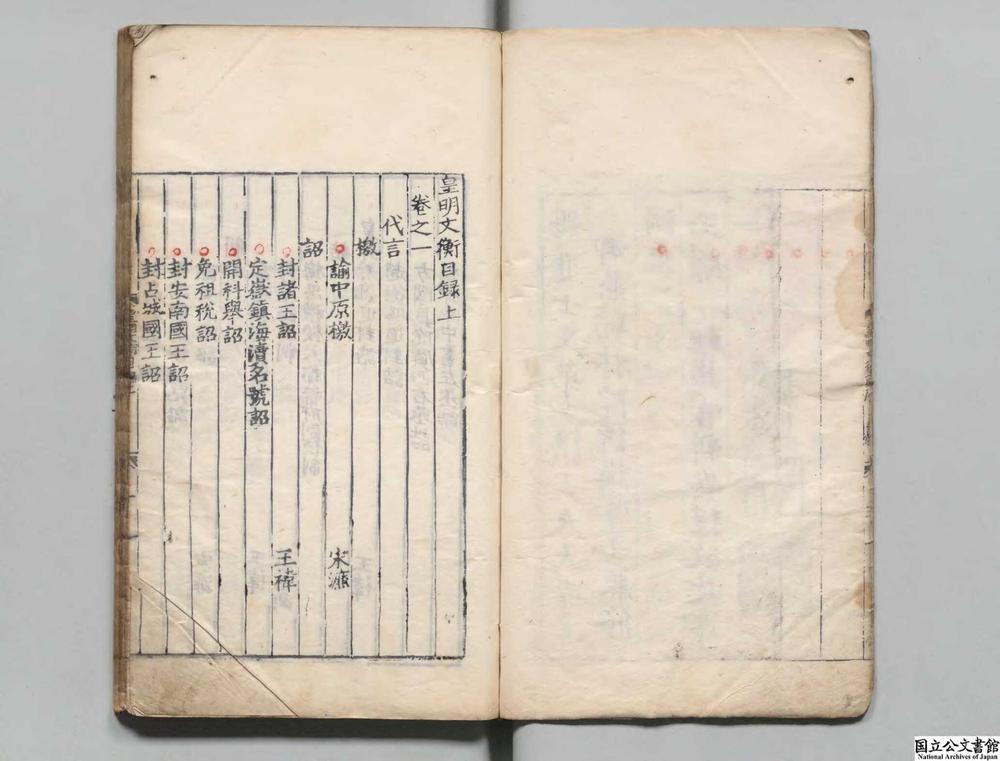 皇明文衡目錄上
卷之一
代言
檄
諭中原檄 宋濂
詔
封諸王詔 王禕
定嶽鎮海瀆名號詔
開科舉詔
免租稅詔
封安南國王詔
封占城國王詔
国立公文書館
National Archives of Japan